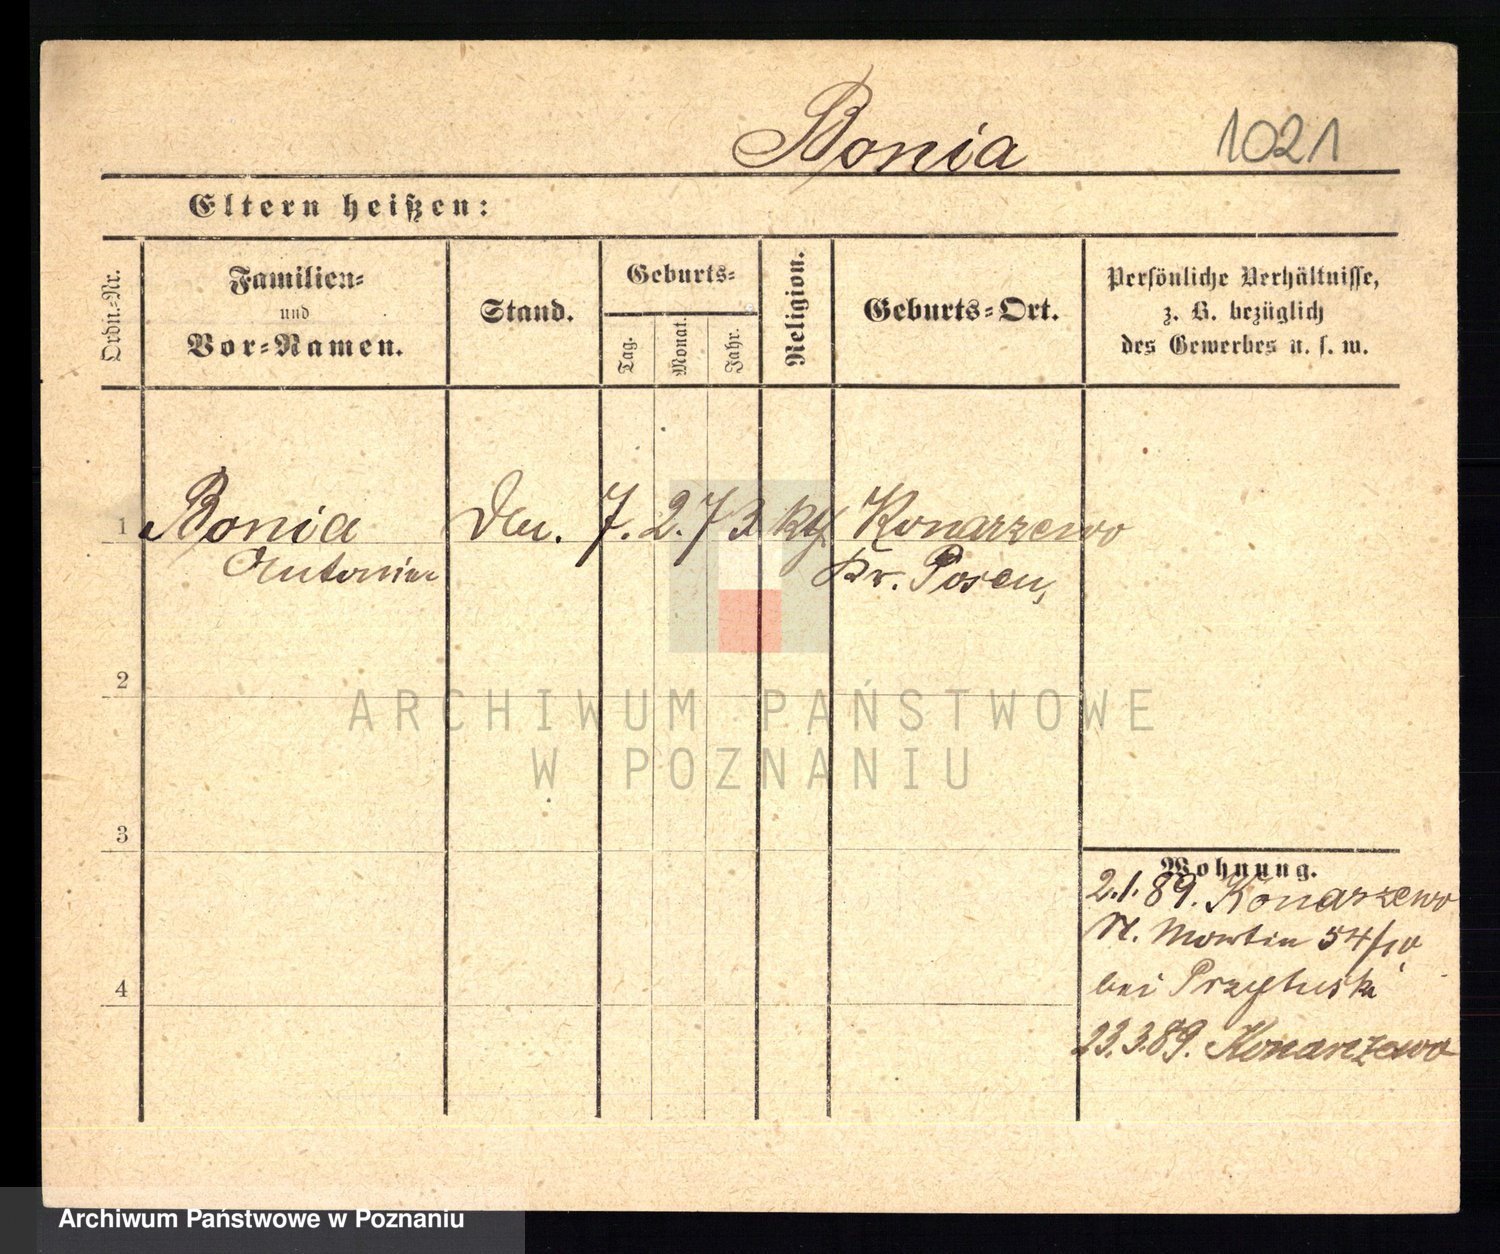 Bonia 1021
Eltern heißen:
Ordn.-Nr.
Familien-
und
Vor-Namen.
Stand.
Geburts-
Tag.
Monat.
Jahr.
Religion.
Geburts-Ort.
Persönliche Verhältnisse,
z. B. bezüglich
des Gewerbes u. s. w.
1 Bonia 7. 2. 73 kth Konarzewo
Antonie Kr. Posen,
2
ARCHIWUM PAŃSTWOWE
W POZNANIU
3
Wohnung.
2.1.89. Konarzewo
St. Martin 54/
bei Przyluski
4
23.3.89. Konarzewo
Archiwum Państwowe w Poznaniu